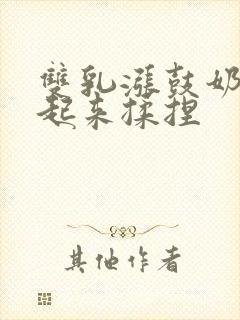 雙乳漲鼓奶
起来揉捏
其他作者